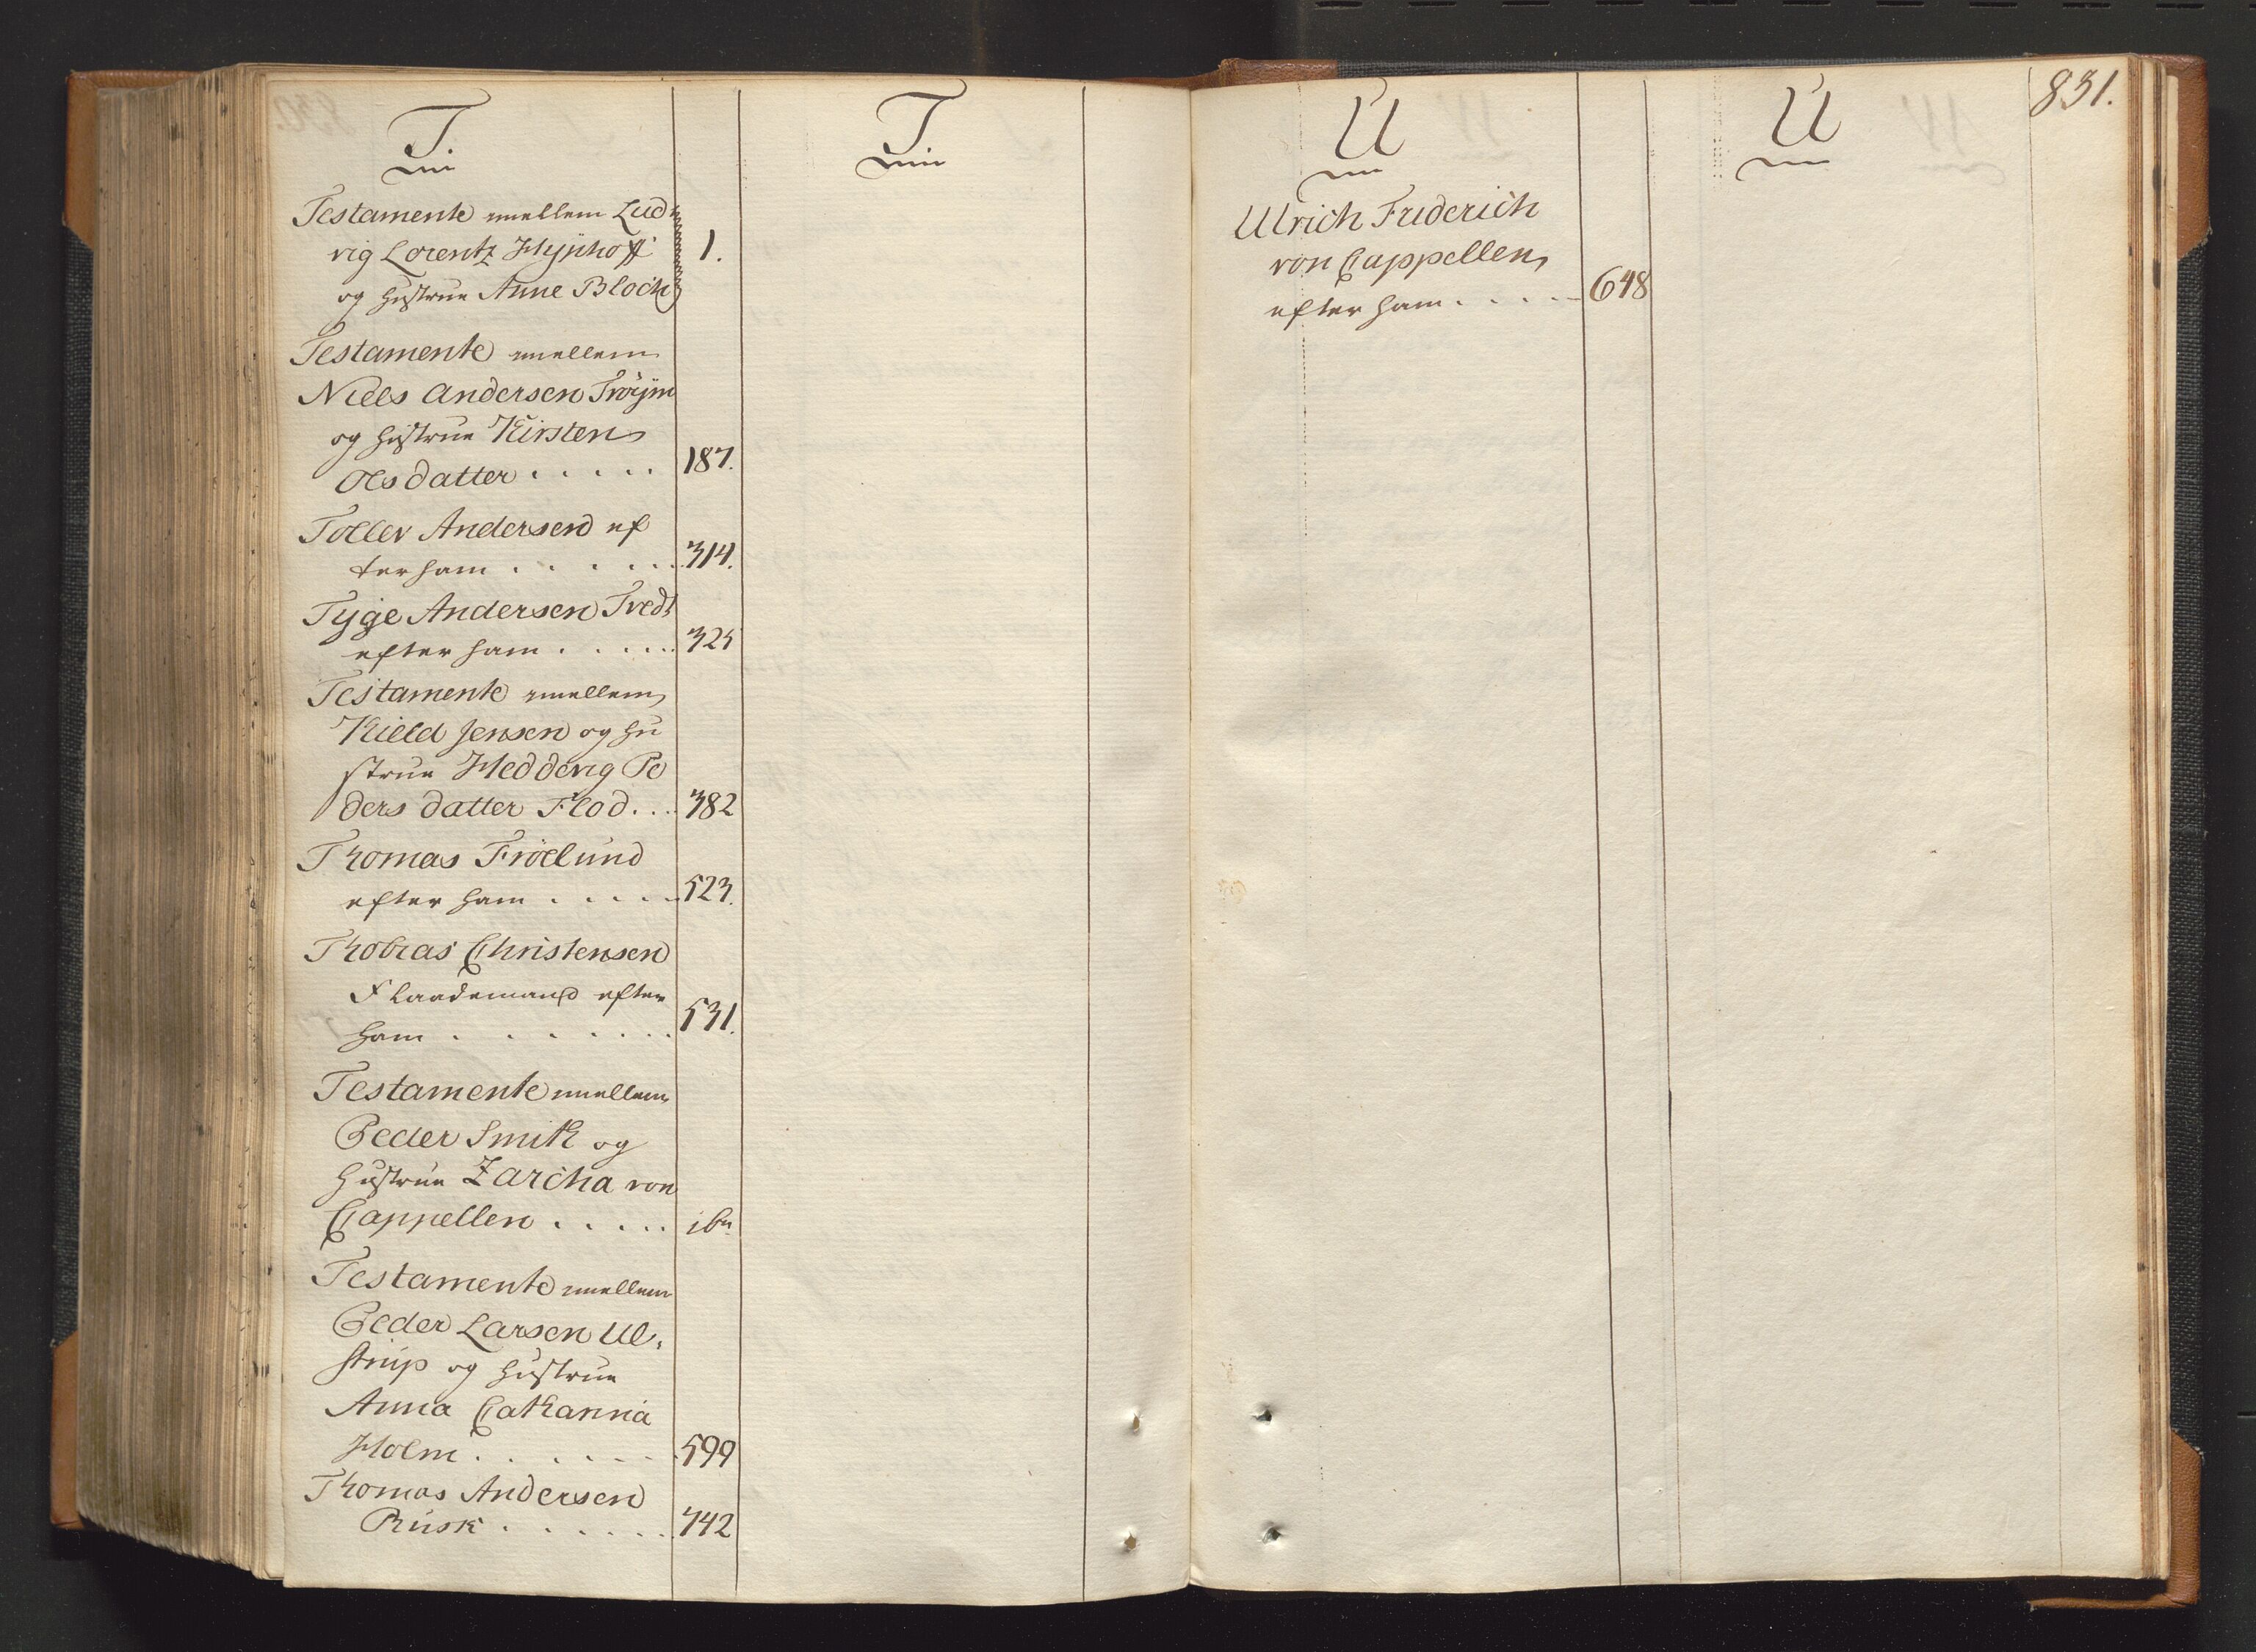 T.
Testamente mellem Lud
vig Lorentz Hÿphoff
og hustrue Anne Bloch
1.
Testamente mellem
Niels Andersen Trøÿm
og hustrue Kirsten
Olsdatter . . . . .
187.
Toller Andersen ef
ter ham . . . . . .
314.
Tyge Andersen Tvedt
efter ham . . . . .
325
Testamente mellem
Kield Jensen og hu
strue Heddevig Pe
ders datter Flod. . .
382
Thomas Frøelund
efter ham . . . . .
523.
Thobias Christensen
efter
ham . . . . . . .
531.
Testamente mellem
Peder Smith og
hustrue Zarcha von
Cappellen . . . . .
ibn
Testamente mellem
Peder Larsen Ul,
strup og hustrue
Anna Catharina
Holm . . . . . .
599
Thomas Andersen
Rusk . . . . . .
742
T
U
Ulrich Friderich
von Cappellen
efter ham . . . . .
648
U
831.